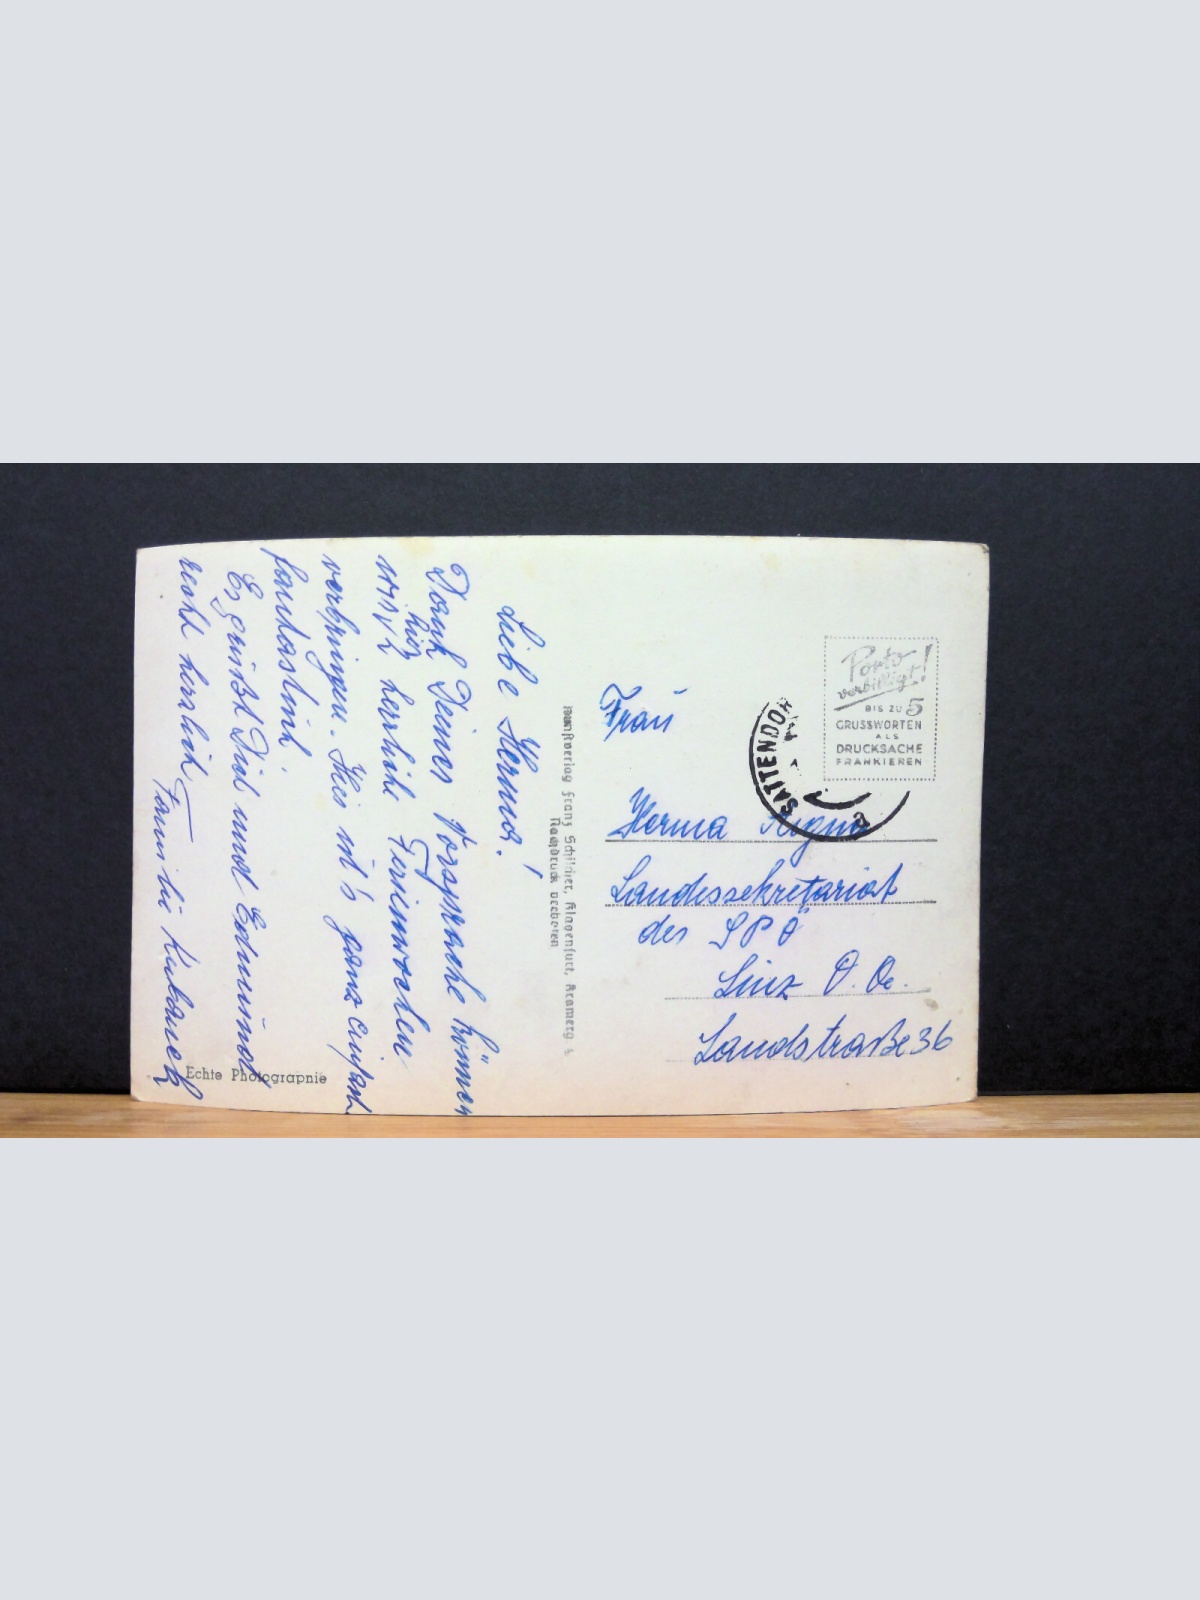 Liebe Herma!
Dank Deiner Vorsprache können
wir hier herrliche Ferienwochen
verbringen. Hier ist's ganz einfach
fantastisch.
Es grüßt Dich und Edmund
recht herzlich Familie
Kunstverlag Franz Schilcher, Klagenfurt,
Nachdruck verboten
Echte Photographie
Porto
verbilligt!
BIS ZU 5
GRUSSWORTEN
ALS
DRUCKSACHE
FRANKIEREN
SATTENDORF
a
Frau
Herma
Landessekretariat
der SPÖ
Linz O.Oe.
Landstraße 36